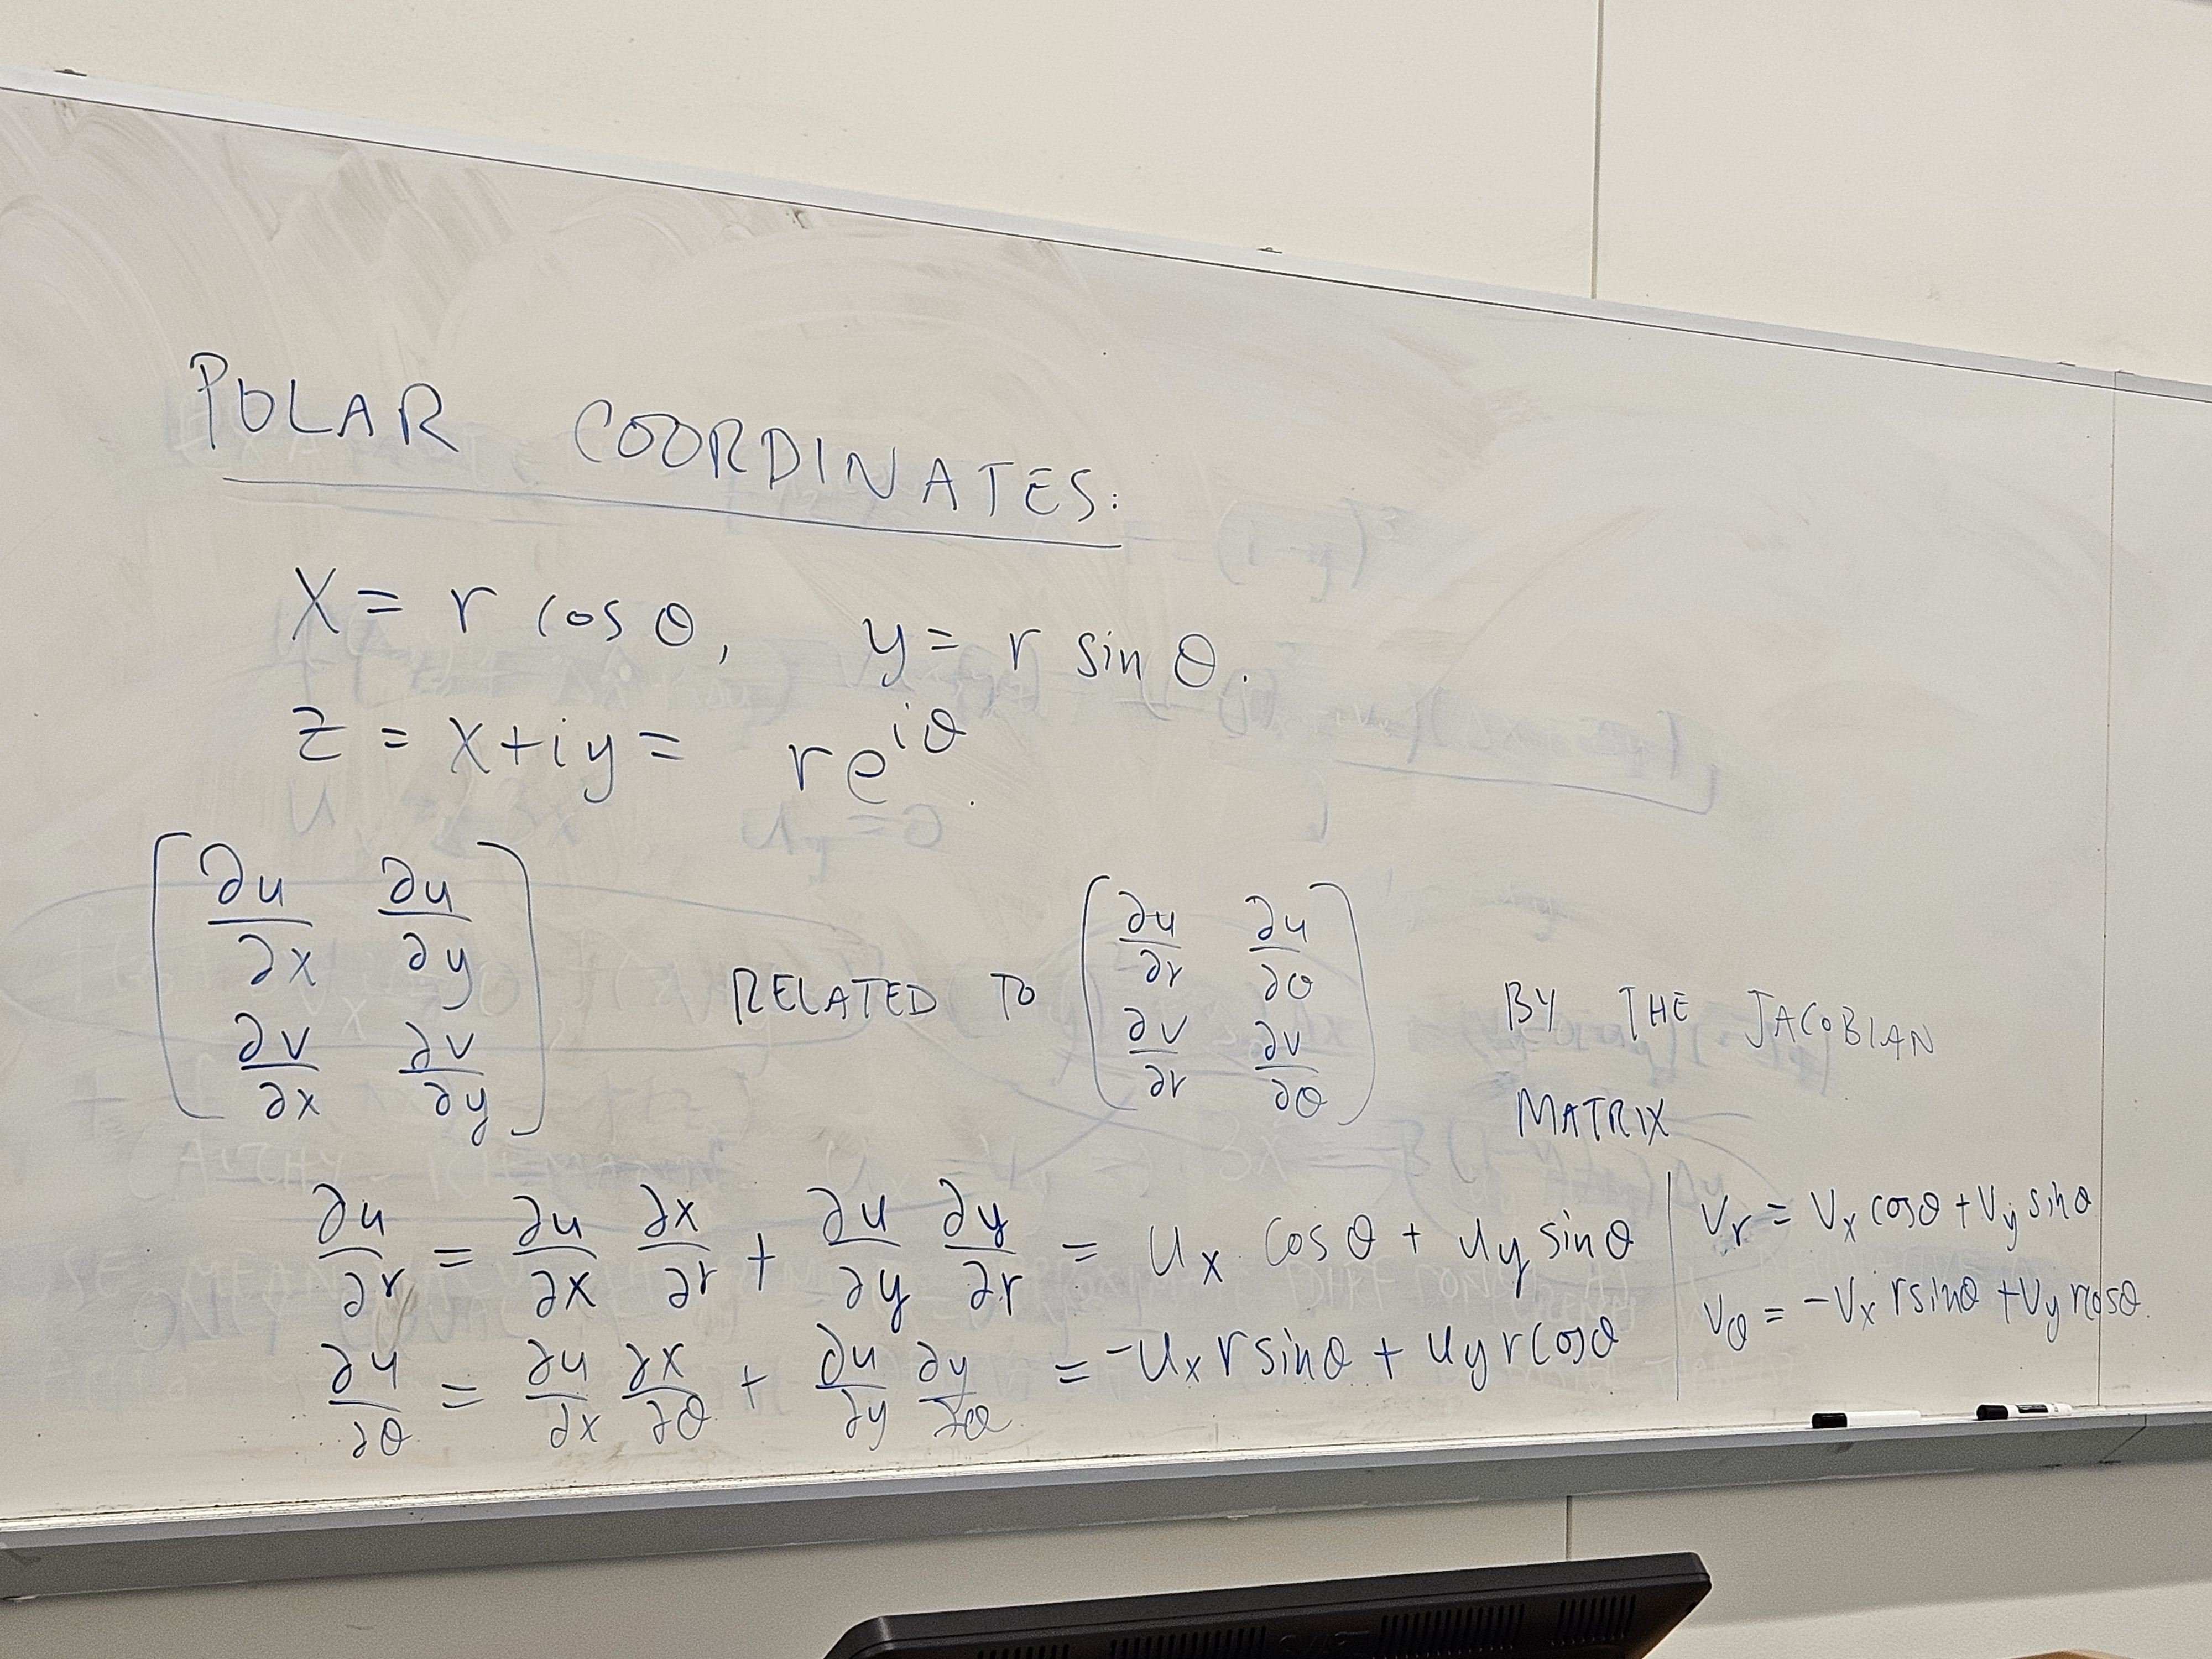 POLAR COORDINATES:
x = r cos θ, y = r sin θ.
z = x+iy = re^{iθ}.
( ∂u/∂x ∂u/∂y
∂v/∂x ∂v/∂y ) RELATED TO ( ∂u/∂r ∂u/∂θ
∂v/∂r ∂v/∂θ ) BY THE JACOBIAN
MATRIX
∂u/∂r = ∂u/∂x ∂x/∂r + ∂u/∂y ∂y/∂r = u_x cos θ + u_y sin θ
∂u/∂θ = ∂u/∂x ∂x/∂θ + ∂u/∂y ∂y/∂θ = -u_x r sin θ + u_y r cos θ
v_r = v_x cos θ + v_y sin θ
v_θ = -v_x r sin θ + v_y r cos θ.